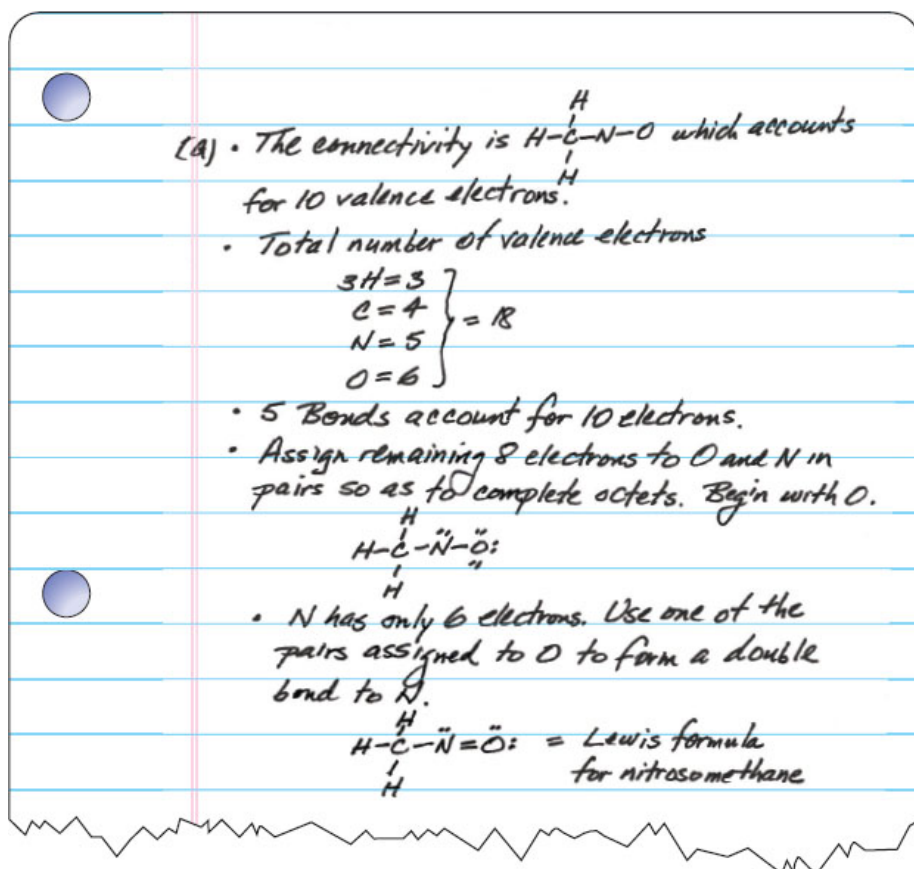 H
(a) · The connectivity is H-C-N-O which accounts
H
for 10 valence electrons.
· Total number of valence electrons
3H = 3
C = 4
= 18
N = 5
O = 6
· 5 Bonds account for 10 electrons.
· Assign remaining 8 electrons to O and N in
pairs so as to complete octets. Begin with O.
H
H-C-N̈-Ö:
H
· N has only 6 electrons. Use one of the
pairs assigned to O to form a double
bond to N.
H
H-C-N̈=Ö: = Lewis formula
H
for nitrosomethane